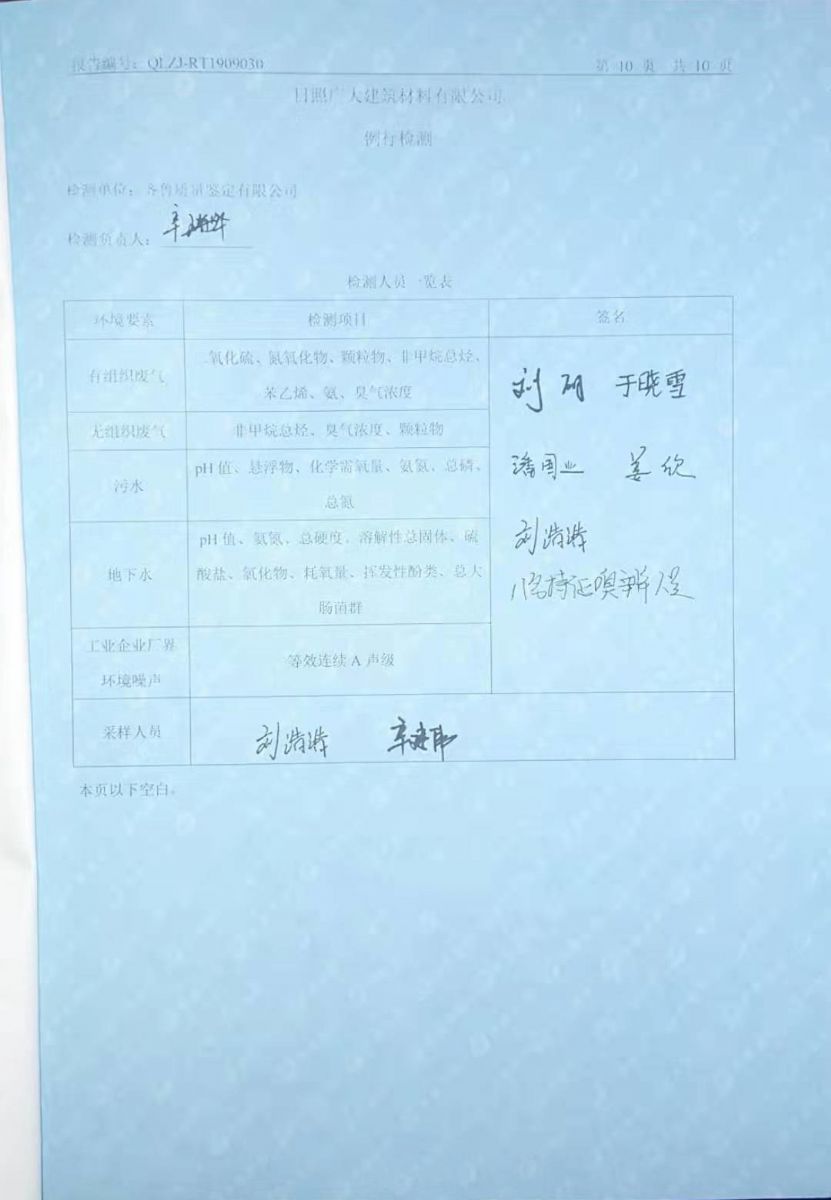 报告编号：QLZJ-RT1909030 第 10 页 共 10 页
日照广大建筑材料有限公司
例行检测
检测单位：齐鲁质量鉴定有限公司
检测负责人：
检测人员一览表
环境要素 检测项目 签名
有组织废气
二氧化硫、氮氧化物、颗粒物、非甲烷总烃、
苯乙烯、氨、臭气浓度
刘 于晓雪
无组织废气 非甲烷总烃、臭气浓度、颗粒物
污水
pH 值、悬浮物、化学需氧量、氨氮、总磷、
总氮
潘国业 姜欣
地下水
pH 值、氨氮、总硬度、溶解性总固体、硫
酸盐、氯化物、耗氧量、挥发性酚类、总大
肠菌群
刘浩
嗅辨人员
工业企业厂界
环境噪声
等效连续 A 声级
采样人员 刘浩
本页以下空白。